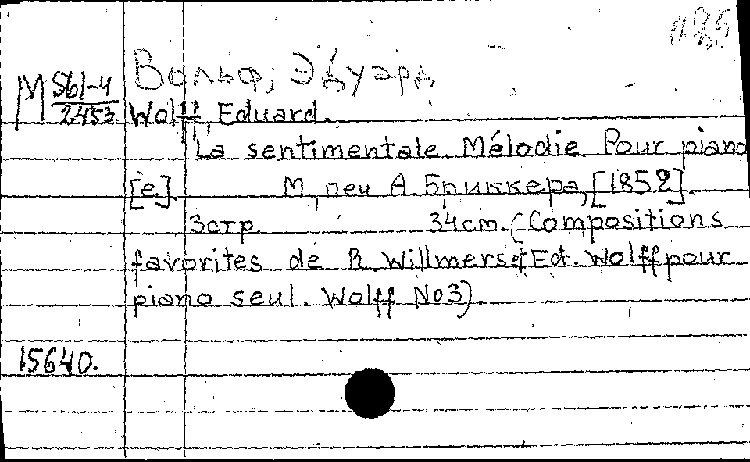 Вольф, Эдуард
М Sбl-4
2453
Wolff, Eduard.
La sentimentale. Mélodie Pour piano
[e]. М, печ А. Бриккера, [1852].
3стр. 34cm. (Compositions
favorites de R. Willmers et Ed. Wolff pour
piano seul. Wolff No3).
15640.